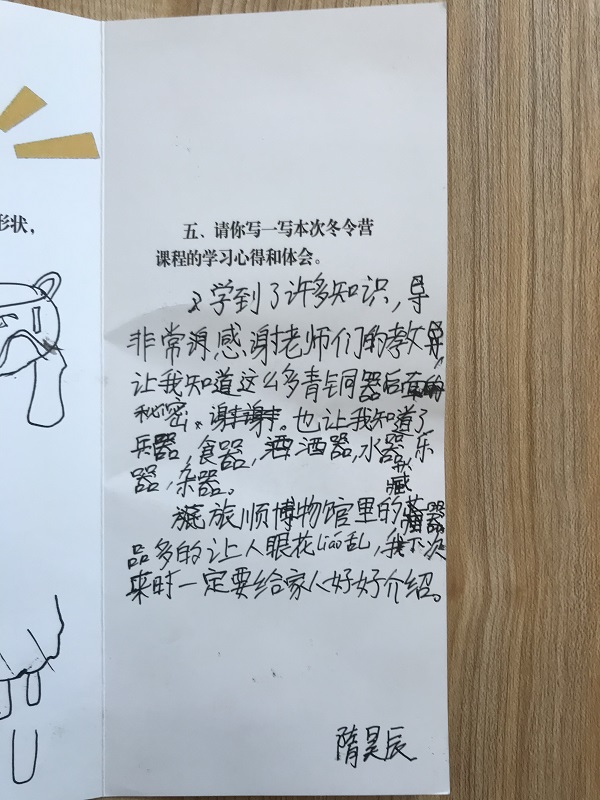 形状，
五、请你写一写本次冬令营
课程的学习心得和体会。
学到了许多知识，
非常感谢老师们的教导，
让我知道这么多青铜器后面的
秘密。谢谢。也让我知道了
兵器，食器，酒器，水器，乐
器，杂器。
旅顺博物馆里的藏
品多的让人眼花liáo乱，我下次
来时一定要给家人好好介绍。
隋昊辰